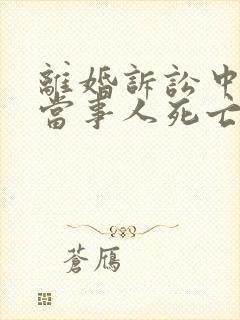 離婚訴訟中
當事人死亡
蒼鴈